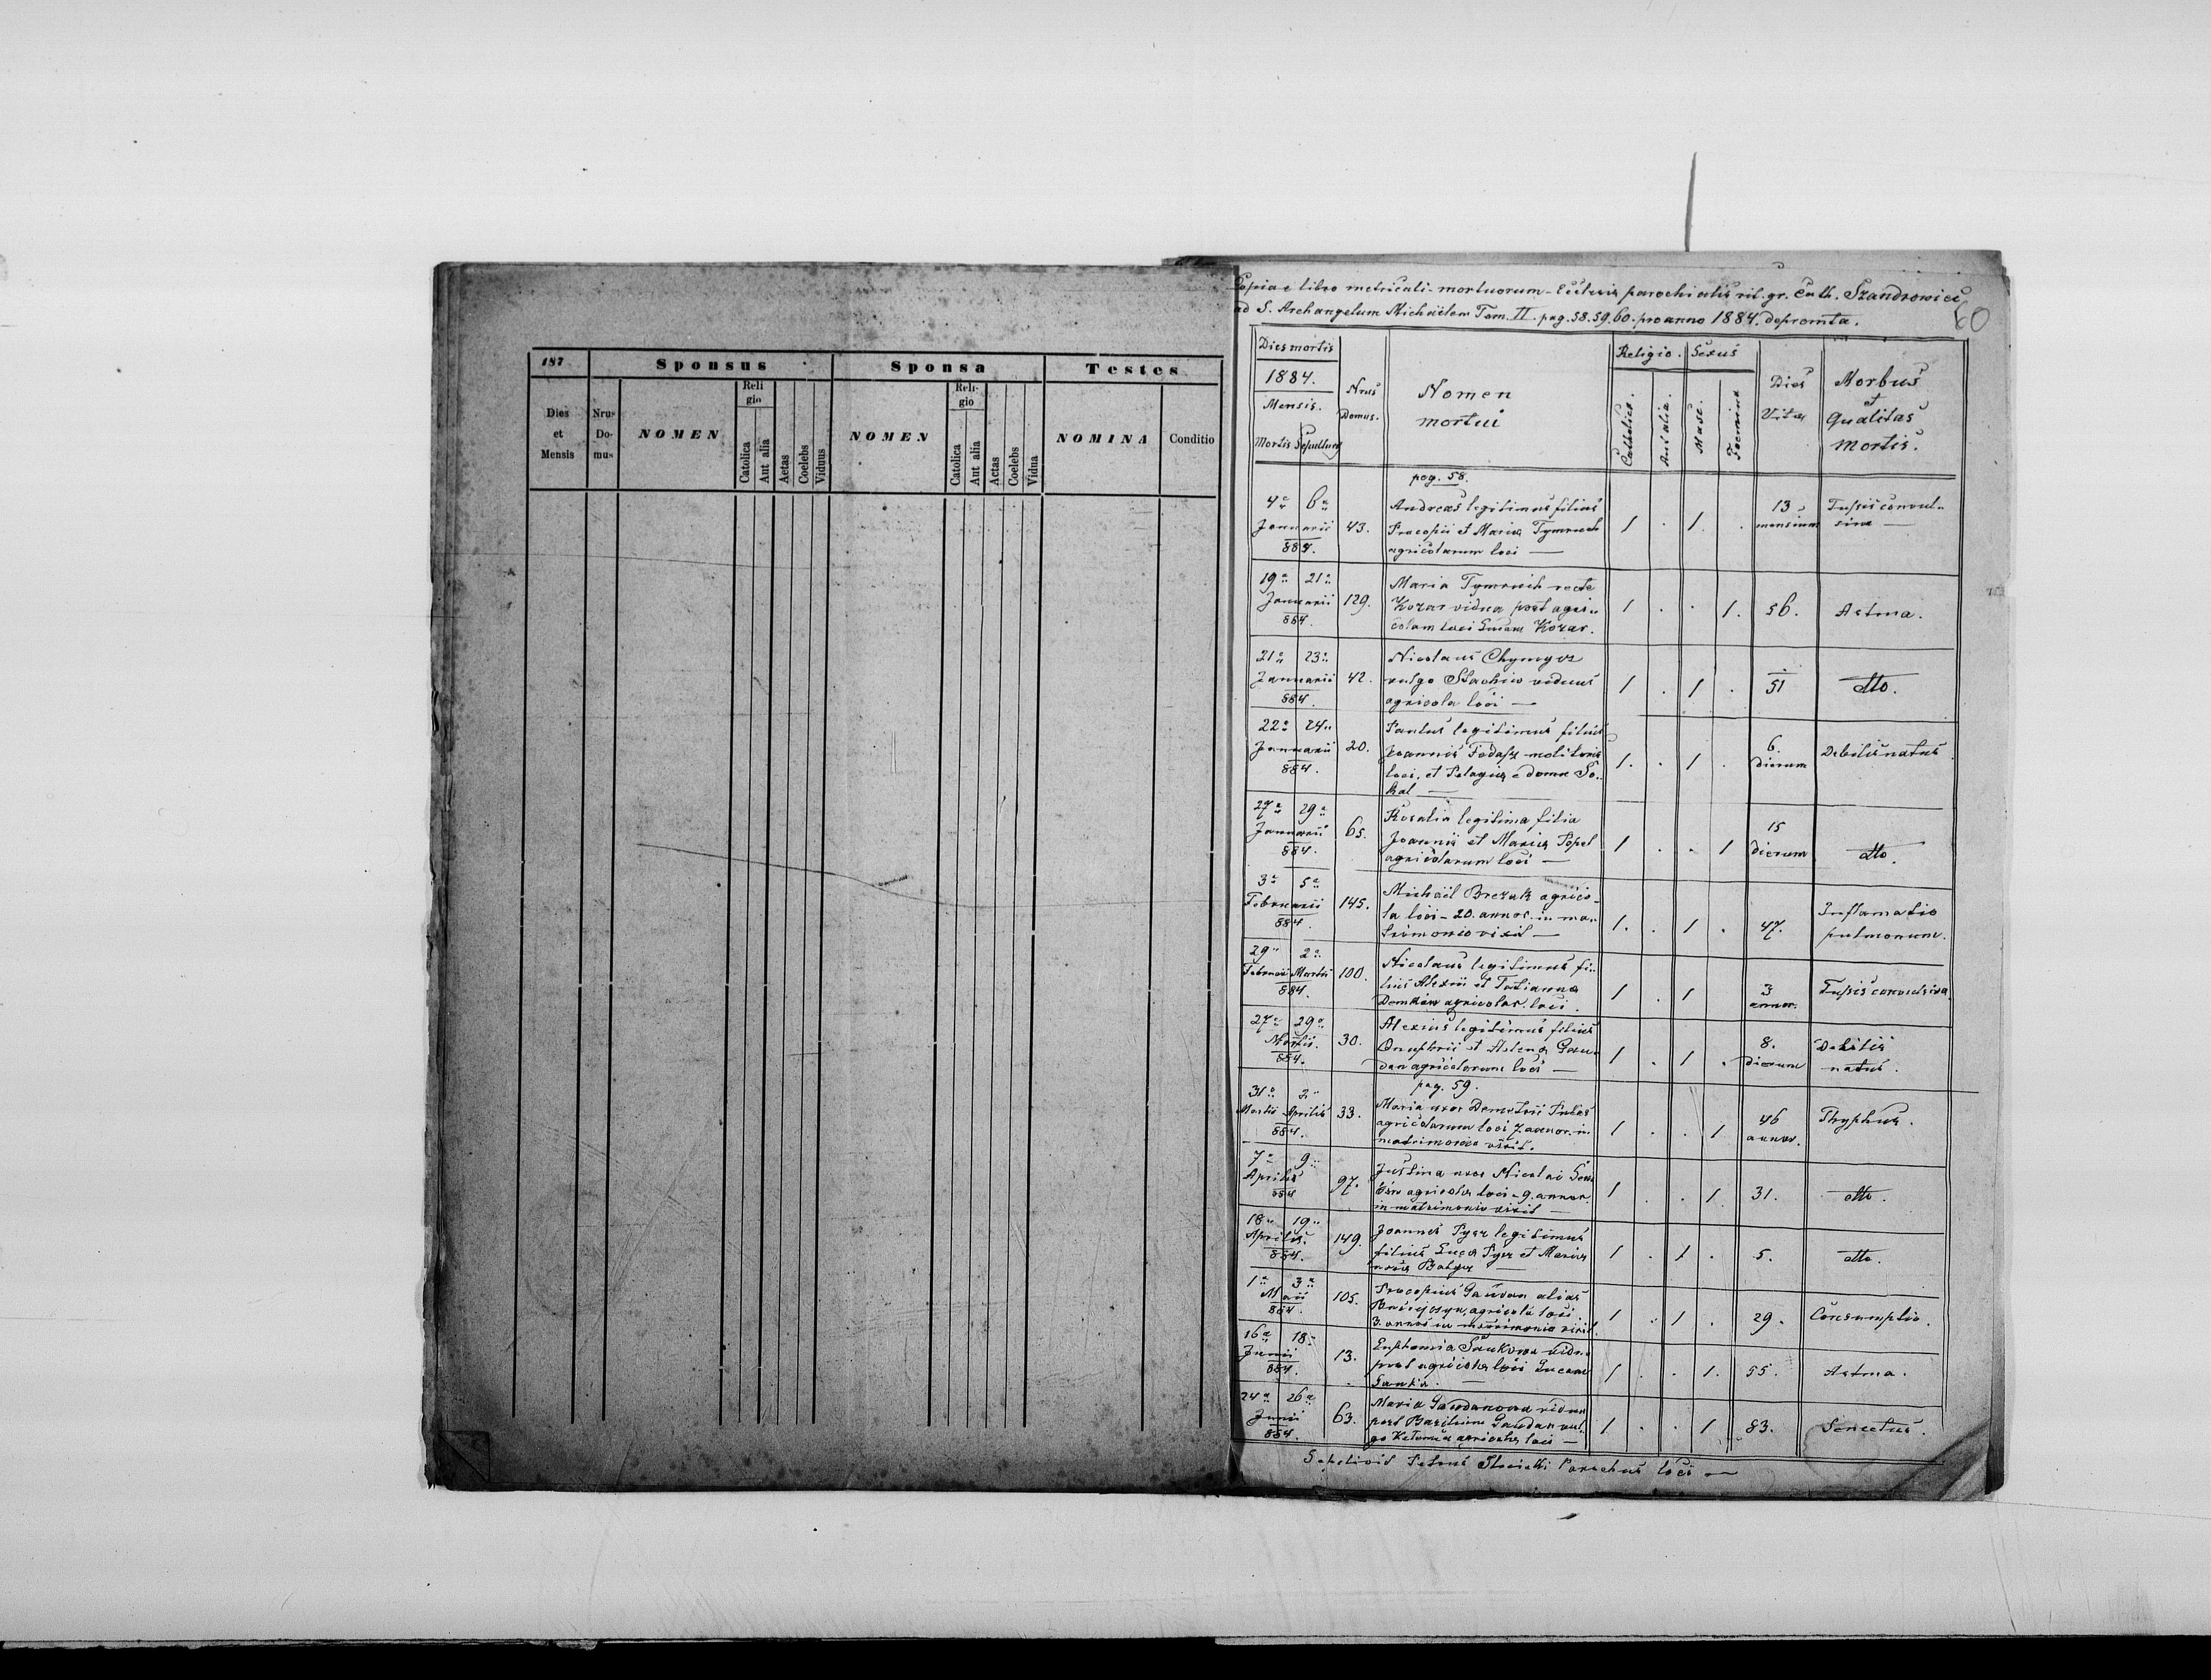 187
Sponsus
Sponsa
Testes
Dies et Mensis
Nrus Domus
NOMEN
Religio
Catolica
Aut alia
Aetas
Coelebs
Viduus
NOMEN
Religio
Catolica
Aut alia
Aetas
Coelebs
Vidua
NOMINA
Conditio
Copia e libro metricali mortuorum Ecclesie parochialis rit. gr. Cath. Szandrowiec
ad S. Archangelum Michaëlem Tom. II. pag. 58. 59. 60. pro anno 1884. depromta.
60
Dies mortis
1884.
Mensis.
Mortis Sepulturæ
Nrus Domus.
Nomen
mortui
Religio.
Catholica.
Aut alia.
Sexus
Masc.
Foemina
Dies
Vitæ
Morbus
et
Qualitas
Mortis.
pag. 58.
4a 6a
Januarii
884.
43.
Andreas legitimus filius
Procopii et Mariæ
agricolarum loci —
1 . 1 .
13
mensium
Tussis convul-
siva —
19a 21a
Januarii
884.
129.
Maria recte
Kozar vidua post agri-
colam loci Kozar.
1 . . 1.
56.
Astma.
21a 23a
Januarii
884.
42.
Nicolaus
vulgo Stachiw viduus
agricola loci —
1 . 1 .
51
dto.
22a 24a
Januarii
884.
20.
Paulus legitimus filius
Joannis molitoris
loci, et Pelagiæ e domo So-
kal —
1. . 1 .
6.
dierum
Debilis natus
27a 29a
Januarii
884.
65.
Rosalia legitima filia
Joannis et Mariæ Popel
agricolarum loci —
1 . . 1
15
dierum
dto.
3a 5a
Februarii
884.
145.
Michaël agrico-
la loci – 20. annos in ma-
trimonio vixit —
1. . 1 .
47.
Inflamatio
pulmonum.
29a 2a
Februarii Martii
884.
100.
Nicolaus legitimus fi-
lius Alexii et Tatianna
agricolar. loci.
1 . 1
3
annor.
Tussis convulsiva
27a 29a
Martii.
884.
30.
Alexius legitimus filius
Onuphrii et Helena Gau-
dan agricolarum loci —
1 . 1 .
8.
dierum
Debilis
natus.
pag. 59.
31a 2a
Martii Aprilis
884.
33.
Maria uxor Demetrii
agricolarum loci 7 annor. in
matrimonio vixit.
1 . . 1
46
annor.
Thyphus.
7a 9a
Aprilis
884
97.
Justina uxor Nicolai
agricolæ loci – 9. annor.
in matrimonio vixit —
1 . . 1
31.
dto.
18a 19a
Aprilis.
884.
149.
Joannes legitimus
filius Lucæ et Mariæ
1 . 1 .
5.
dto.
1a 3a
Maii
884.
105.
Procopius Gaudan alias
agricola loci
3. annos in matrimonio vixit.
1 . 1 .
29.
Consumptio.
16a 18a
Junii
884.
13.
Euphemia vidua
post agricolæ loci Lucam
1 . . 1.
55.
Astma.
24a 26a
Junii
884.
63.
Maria Gaudanowa vidua
post Basilium Gaudan vul-
go agricolæ loci —
1 . . 1
83.
Senectus.
Parochus loci —